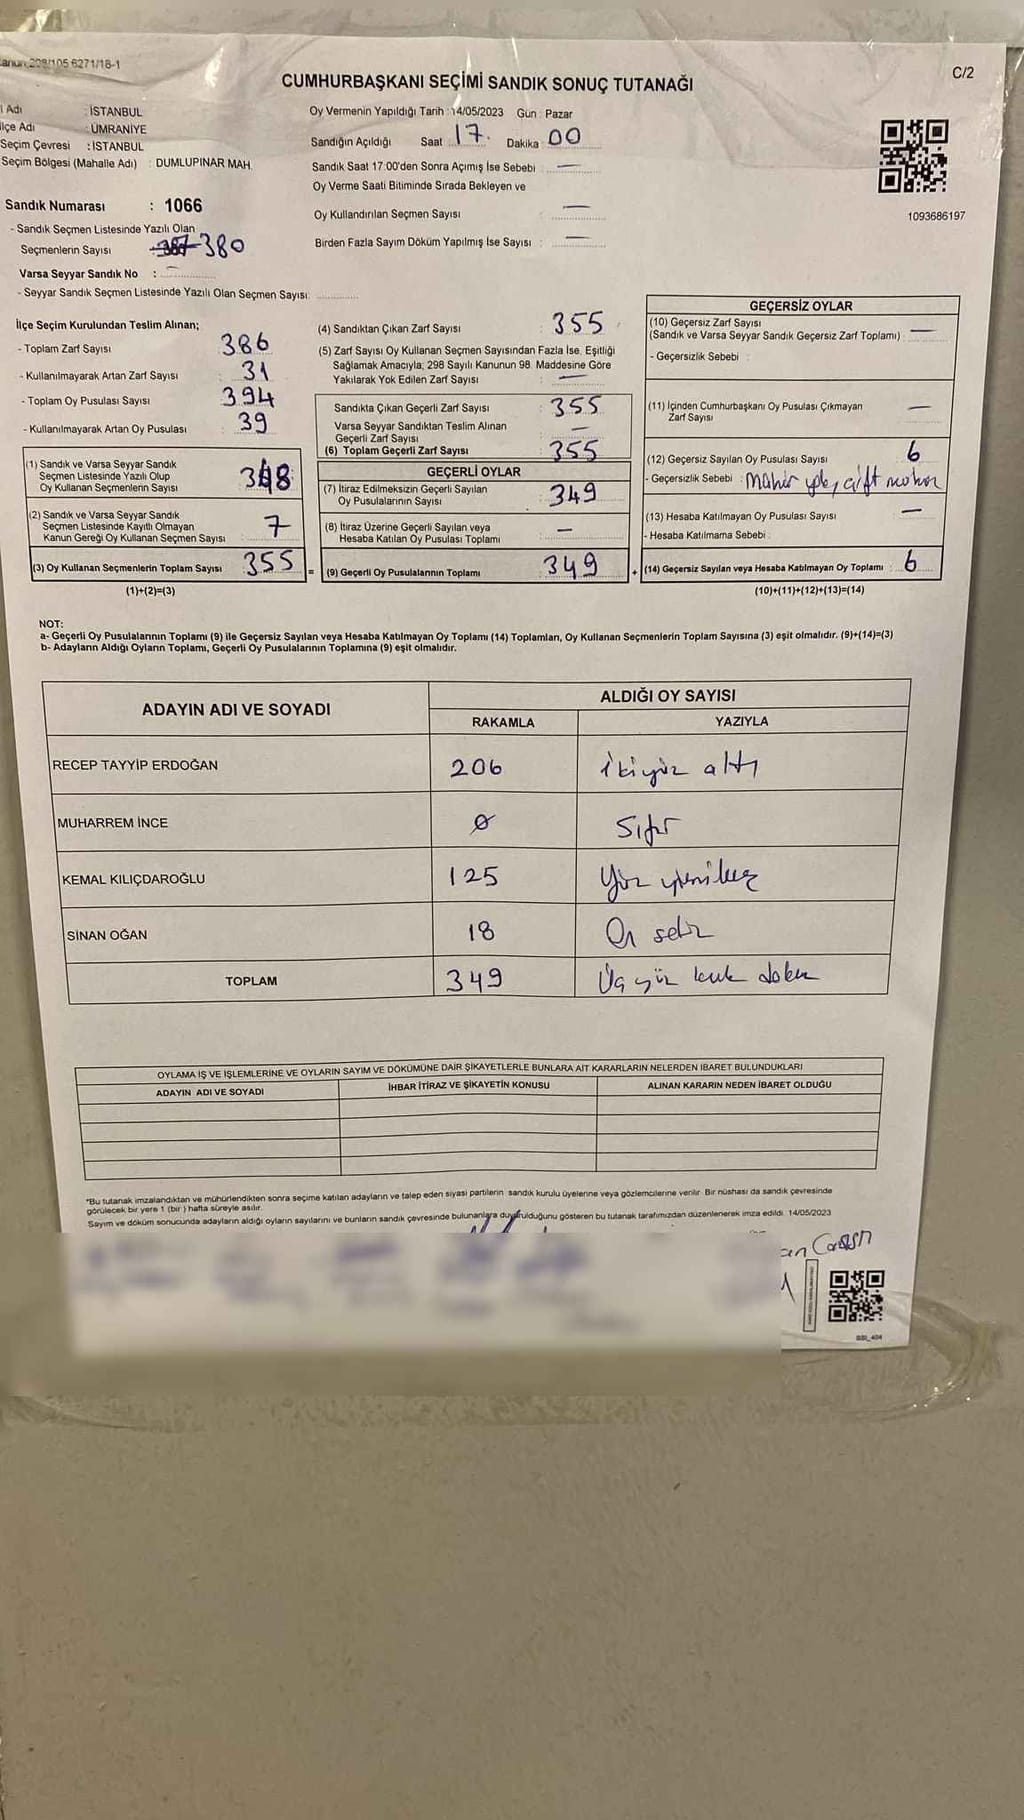 CUMHURBAŞKANI SEÇİMİ SANDIK SONUÇ TUTANAĞI
C/2
İSTANBUL
İlçe Adı : ÜMRANİYE
Seçim Çevresi : İSTANBUL
Seçim Bölgesi (Mahalle Adı) : DUMLUPINAR MAH.
Sandık Numarası : 1066
- Sandık Seçmen Listesinde Yazılı Olan
Seçmenlerin Sayısı 380
Varsa Seyyar Sandık No : —
- Seyyar Sandık Seçmen Listesinde Yazılı Olan Seçmen Sayısı:
Oy Vermenin Yapıldığı Tarih : 14/05/2023 Gün : Pazar
Sandığın Açıldığı Saat 17. Dakika : 00
Sandık Saat 17:00'den Sonra Açımış İse Sebebi : —
Oy Verme Saati Bitiminde Sırada Bekleyen ve
Oy Kullandırılan Seçmen Sayısı : —
Birden Fazla Sayım Döküm Yapılmış İse Sayısı : —
1093686197
İlçe Seçim Kurulundan Teslim Alınan;
- Toplam Zarf Sayısı 386
- Kullanılmayarak Artan Zarf Sayısı : 31
- Toplam Oy Pusulası Sayısı : 394
- Kullanılmayarak Artan Oy Pusulası : 39
(1) Sandık ve Varsa Seyyar Sandık
Seçmen Listesinde Yazılı Olup
Oy Kullanan Seçmenlerin Sayısı 348
(2) Sandık ve Varsa Seyyar Sandık
Seçmen Listesinde Kayıtlı Olmayan
Kanun Gereği Oy Kullanan Seçmen Sayısı : 7
(3) Oy Kullanan Seçmenlerin Toplam Sayısı : 355
(1)+(2)=(3)
(4) Sandıktan Çıkan Zarf Sayısı : 355
(5) Zarf Sayısı Oy Kullanan Seçmen Sayısından Fazla İse, Eşitliği
Sağlamak Amacıyla; 298 Sayılı Kanunun 98. Maddesine Göre
Yakılarak Yok Edilen Zarf Sayısı : —
Sandıkta Çıkan Geçerli Zarf Sayısı : 355
Varsa Seyyar Sandıktan Teslim Alınan
Geçerli Zarf Sayısı : —
(6) Toplam Geçerli Zarf Sayısı : 355
GEÇERLİ OYLAR
(7) İtiraz Edilmeksizin Geçerli Sayılan
Oy Pusulalarının Sayısı : 349
(8) İtiraz Üzerine Geçerli Sayılan veya
Hesaba Katılan Oy Pusulası Toplamı : —
= (9) Geçerli Oy Pusulalarının Toplamı : 349
GEÇERSİZ OYLAR
(10) Geçersiz Zarf Sayısı
(Sandık ve Varsa Seyyar Sandık Geçersiz Zarf Toplamı) : —
- Geçersizlik Sebebi :
(11) İçinden Cumhurbaşkanı Oy Pusulası Çıkmayan
Zarf Sayısı : —
(12) Geçersiz Sayılan Oy Pusulası Sayısı : 6
- Geçersizlik Sebebi : Mühür yok, çift mühür
(13) Hesaba Katılmayan Oy Pusulası Sayısı : —
- Hesaba Katılmama Sebebi :
+ (14) Geçersiz Sayılan veya Hesaba Katılmayan Oy Toplamı : 6
(10)+(11)+(12)+(13)=(14)
NOT:
a- Geçerli Oy Pusulalarının Toplamı (9) ile Geçersiz Sayılan veya Hesaba Katılmayan Oy Toplamı (14) Toplamları, Oy Kullanan Seçmenlerin Toplam Sayısına (3) eşit olmalıdır. (9)+(14)=(3)
b- Adayların Aldığı Oyların Toplamı, Geçerli Oy Pusulalarının Toplamına (9) eşit olmalıdır.
ADAYIN ADI VE SOYADI
ALDIĞI OY SAYISI
RAKAMLA YAZIYLA
RECEP TAYYİP ERDOĞAN 206 ikiyüz altı
MUHARREM İNCE 0 Sıfır
KEMAL KILIÇDAROĞLU 125 Yüz yirmibeş
SİNAN OĞAN 18 On sekiz
TOPLAM 349 Üç yüz kırk dokuz
OYLAMA İŞ VE İŞLEMLERİNE VE OYLARIN SAYIM VE DÖKÜMÜNE DAİR ŞİKAYETLERLE BUNLARA AİT KARARLARIN NELERDEN İBARET BULUNDUKLARI
ADAYIN ADI VE SOYADI İHBAR İTİRAZ VE ŞİKAYETİN KONUSU ALINAN KARARIN NEDEN İBARET OLDUĞU
*Bu tutanak imzalandıktan ve mühürlendikten sonra seçime katılan adayların ve talep eden siyasi partilerin sandık kurulu üyelerine veya gözlemcilerine verilir. Bir nüshası da sandık çevresinde
görülecek bir yere 1 (bir) hafta süreyle asılır.
Sayım ve döküm sonucunda adayların aldığı oyların sayılarını ve bunların sandık çevresinde bulunanlara duyurulduğunu gösteren bu tutanak tarafımızdan düzenlenerek imza edildi. 14/05/2023